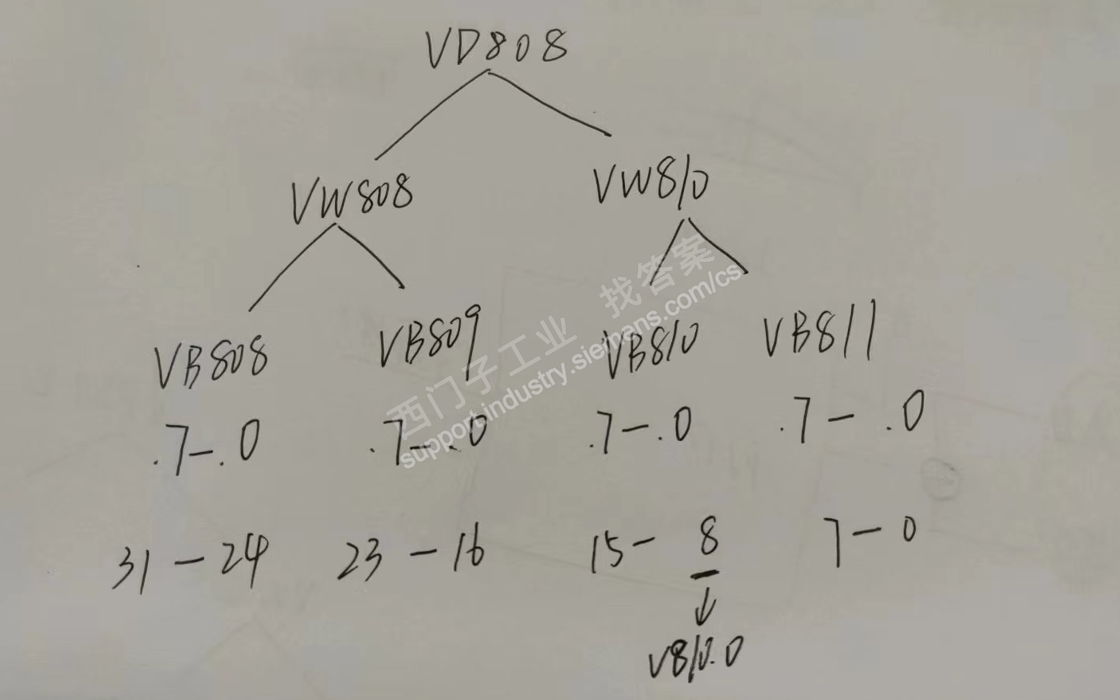 VD808
VW808 VW810
VB808 VB809 VB810 VB811
.7-.0 .7-.0 .7-.0 .7-.0
31-24 23-16 15-8 7-0
V810.0
西门子工业 找答案
support.industry.siemens.com/cs